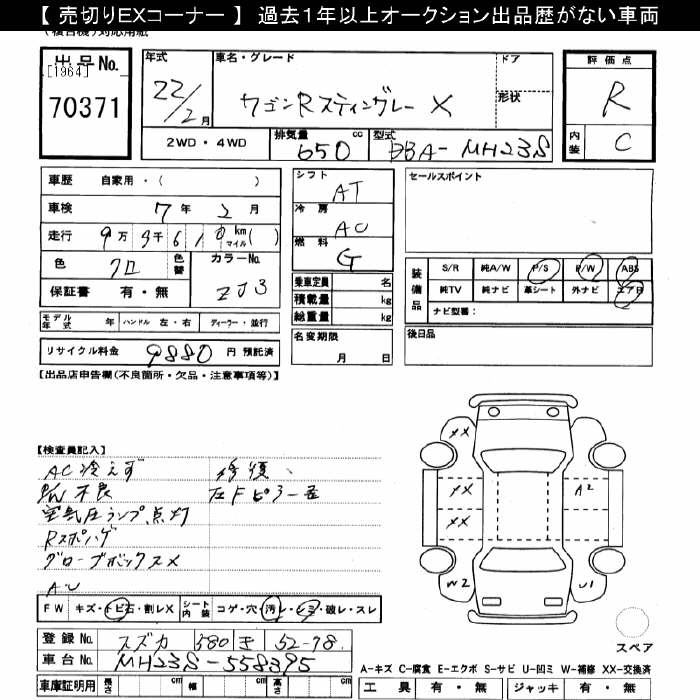 【 売切りEXコーナー 】 過去1年以上オークション出品歴がない車両
出品No.
[1964]
70371
年式
22/2月
車名・グレード
ワゴンRスティングレー X
ドア
形状
2WD・4WD
排気量 650 cc
型式 DBA-MH23S
評価点
R
内装 C
車歴 自家用・( )
車検 7年2月
走行 9万3千610km(マイル)
色 クロ
色替
カラーNo. ZJ3
保証書 有・無
モデル年式 年 ハンドル 左・右 ディーラー・並行
リサイクル料金 9880 円 預託済
シフト AT
冷房 AC
燃料 G
乗車定員 名
積載量 kg
総重量 kg
名変期限 月 日
セールスポイント
装備品
S/R 純A/W P/S P/W ABS
純TV 純ナビ 革シート 外ナビ エアB
ナビ型番:
後日品
【出品店申告欄(不良箇所・欠品・注意事項等)】
【検査員記入】
AC冷えず
空気圧ランプ点灯
Rスポハゲ
グローブボックスX
修復、
左Fピラー差
XX
XX
XX
A2
W2
U1
FW キズ・トビ石・割レX シート内装 コゲ・穴・汚レ・シミ・破レ・スレ
登録No. スズカ 580 き 52-78
車台No. MH23S-558395
車庫証明用 長さ cm 幅 cm 高さ cm
スペア
A-キズ C-腐食 E-エクボ S-サビ U-凹ミ W-補修 XX-交換済
工具 有・無 ジャッキ 有・無